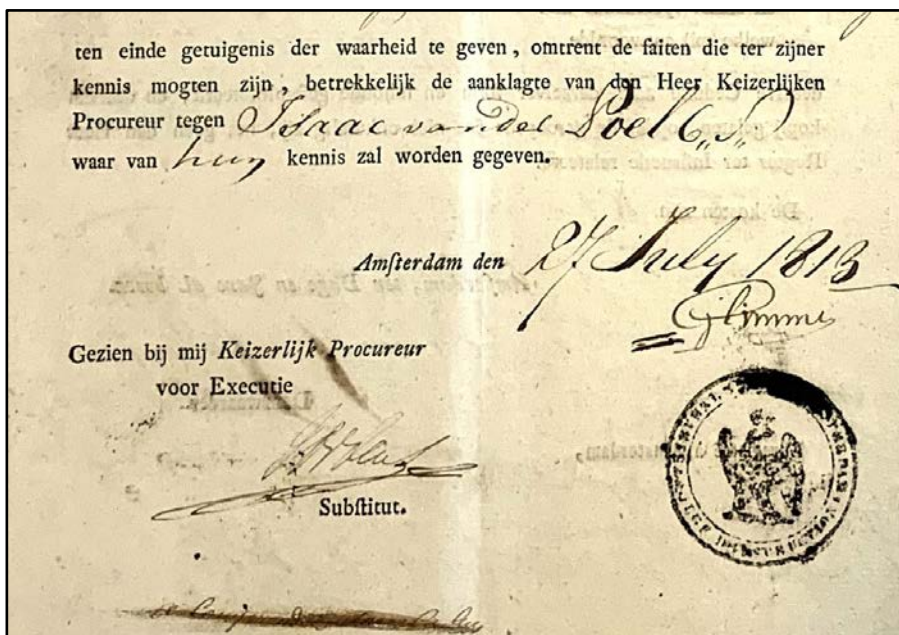 ten einde getuigenis der waarheid te geven, omtrent de faiten die ter zijner
kennis mogten zijn, betrekkelijk de aanklagte van den Heer Keizerlijken
Procureur tegen Isaac van der Poel C.S.
waar van hun kennis zal worden gegeven.
Amſterdam den 27 July 1813
Gezien bij mij Keizerlijk Procureur
voor Executie
Subſtitut.
TRIBUNAL
JUGE D'INSTRUCTION